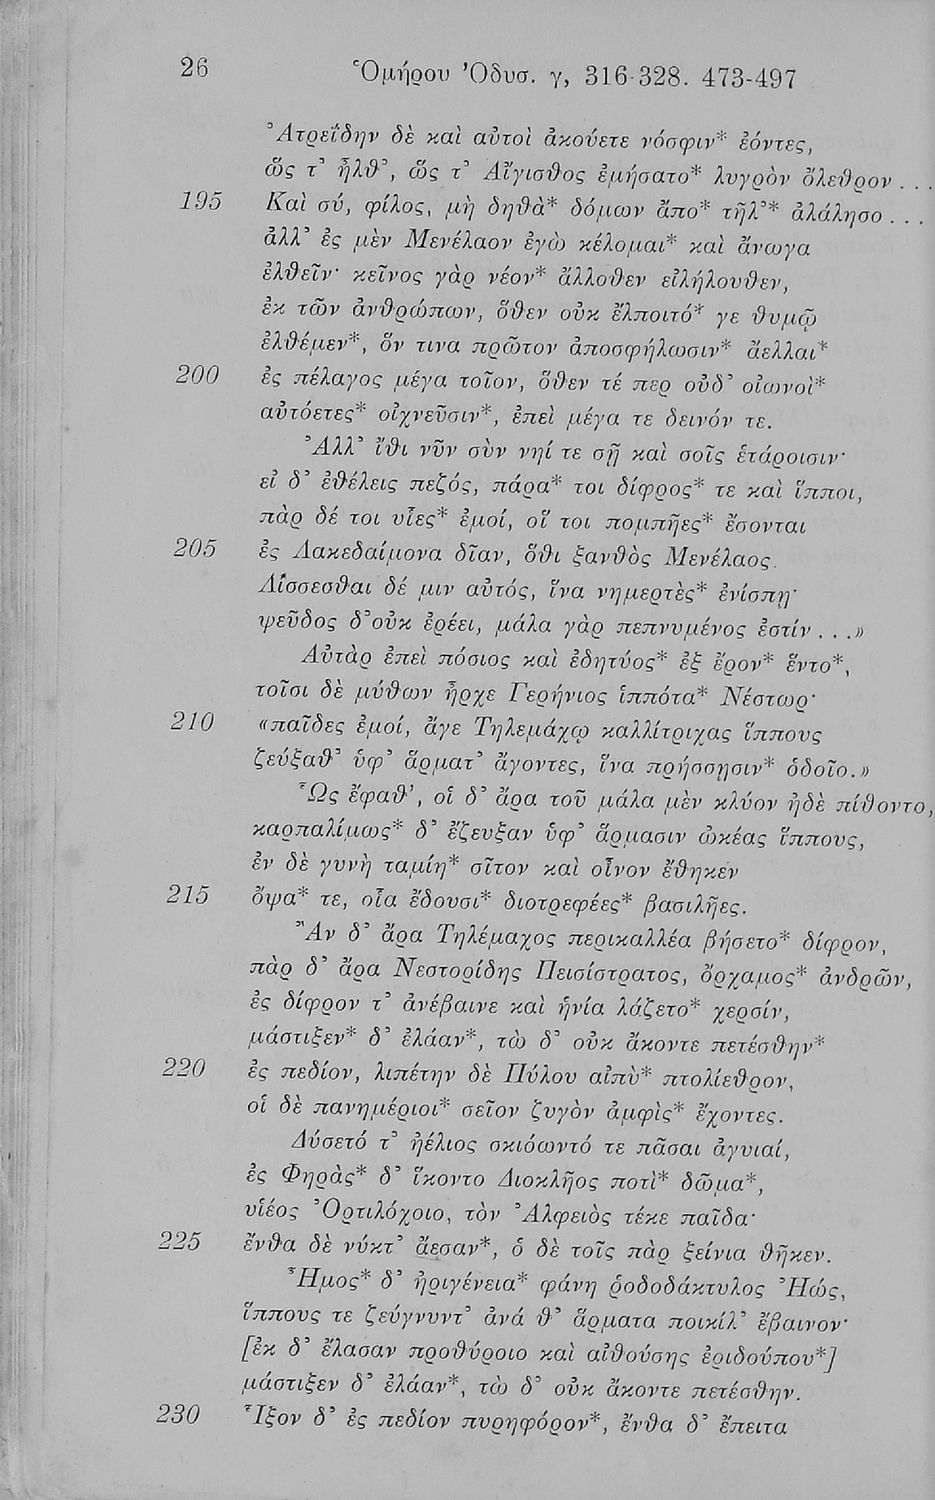 26 Ὁμήρου Ὀδυσ. γ, 316-328. 473-497
Ἀτρεΐδην δὲ καὶ αὐτοὶ ἀκούετε νόσφιν* ἐόντες,
ὥς τ' ἦλθ', ὥς τ' Αἴγισθος ἐμήσατο* λυγρὸν ὄλεθρον . . .
195 Καὶ σύ, φίλος, μὴ δηθὰ* δόμων ἄπο* τῆλ'* ἀλάλησο . . .
ἀλλ' ἐς μὲν Μενέλαον ἐγὼ κέλομαι* καὶ ἄνωγα
ἐλθεῖν· κεῖνος γὰρ νέον* ἄλλοθεν εἰλήλουθεν,
ἐκ τῶν ἀνθρώπων, ὅθεν οὐκ ἔλποιτό* γε θυμῷ
ἐλθέμεν*, ὅν τινα πρῶτον ἀποσφήλωσιν* ἄελλαι*
200 ἐς πέλαγος μέγα τοῖον, ὅθεν τέ περ οὐδ' οἰωνοὶ*
αὐτόετες* οἰχνεῦσιν*, ἐπεὶ μέγα τε δεινόν τε.
Ἀλλ' ἴθι νῦν σὺν νηΐ τε σῇ καὶ σοῖς ἑτάροισιν·
εἰ δ' ἐθέλεις πεζός, πάρα* τοι δίφρος* τε καὶ ἵπποι,
πὰρ δέ τοι υἷες* ἐμοί, οἵ τοι πομπῆες* ἔσονται
205 ἐς Λακεδαίμονα δῖαν, ὅθι ξανθὸς Μενέλαος.
Λίσσεσθαι δέ μιν αὐτός, ἵνα νημερτὲς* ἐνίσπῃ·
ψεῦδος δ'οὐκ ἐρέει, μάλα γὰρ πεπνυμένος ἐστίν . . .»
Αὐτὰρ ἐπεὶ πόσιος καὶ ἐδητύος* ἐξ ἔρον* ἕντο*,
τοῖσι δὲ μύθων ἦρχε Γερήνιος ἱππότα* Νέστωρ·
210 «παῖδες ἐμοί, ἄγε Τηλεμάχῳ καλλίτριχας ἵππους
ζεύξαθ' ὑφ' ἅρματ' ἄγοντες, ἵνα πρήσσῃσιν* ὁδοῖο.»
Ὣς ἔφαθ', οἱ δ' ἄρα τοῦ μάλα μὲν κλύον ἠδὲ πίθοντο,
καρπαλίμως* δ' ἔζευξαν ὑφ' ἅρμασιν ὠκέας ἵππους,
ἐν δὲ γυνὴ ταμίη* σῖτον καὶ οἶνον ἔθηκεν
215 ὄψα* τε, οἷα ἔδουσι* διοτρεφέες* βασιλῆες.
Ἂν δ' ἄρα Τηλέμαχος περικαλλέα βήσετο* δίφρον,
πὰρ δ' ἄρα Νεστορίδης Πεισίστρατος, ὄρχαμος* ἀνδρῶν,
ἐς δίφρον τ' ἀνέβαινε καὶ ἡνία λάζετο* χερσίν,
μάστιξεν* δ' ἐλάαν*, τὼ δ' οὐκ ἄκοντε πετέσθην*
220 ἐς πεδίον, λιπέτην δὲ Πύλου αἰπὺ* πτολίεθρον,
οἱ δὲ πανημέριοι* σεῖον ζυγὸν ἀμφὶς* ἔχοντες.
Δύσετό τ' ἠέλιος σκιόωντό τε πᾶσαι ἀγυιαί,
ἐς Φηρὰς* δ' ἵκοντο Διοκλῆος ποτὶ* δῶμα*,
υἱέος Ὀρτιλόχοιο, τὸν Ἀλφειὸς τέκε παῖδα·
225 ἔνθα δὲ νύκτ' ἄεσαν*, ὁ δὲ τοῖς πὰρ ξείνια θῆκεν.
Ἦμος* δ' ἠριγένεια* φάνη ῥοδοδάκτυλος Ἠώς,
ἵππους τε ζεύγνυντ' ἀνά θ' ἅρματα ποικίλ' ἔβαινον·
[ἐκ δ' ἔλασαν προθύροιο καὶ αἰθούσης ἐριδούπου*]
μάστιξεν δ' ἐλάαν*, τὼ δ' οὐκ ἄκοντε πετέσθην.
230 Ἷξον δ' ἐς πεδίον πυρηφόρον*, ἔνθα δ' ἔπειτα